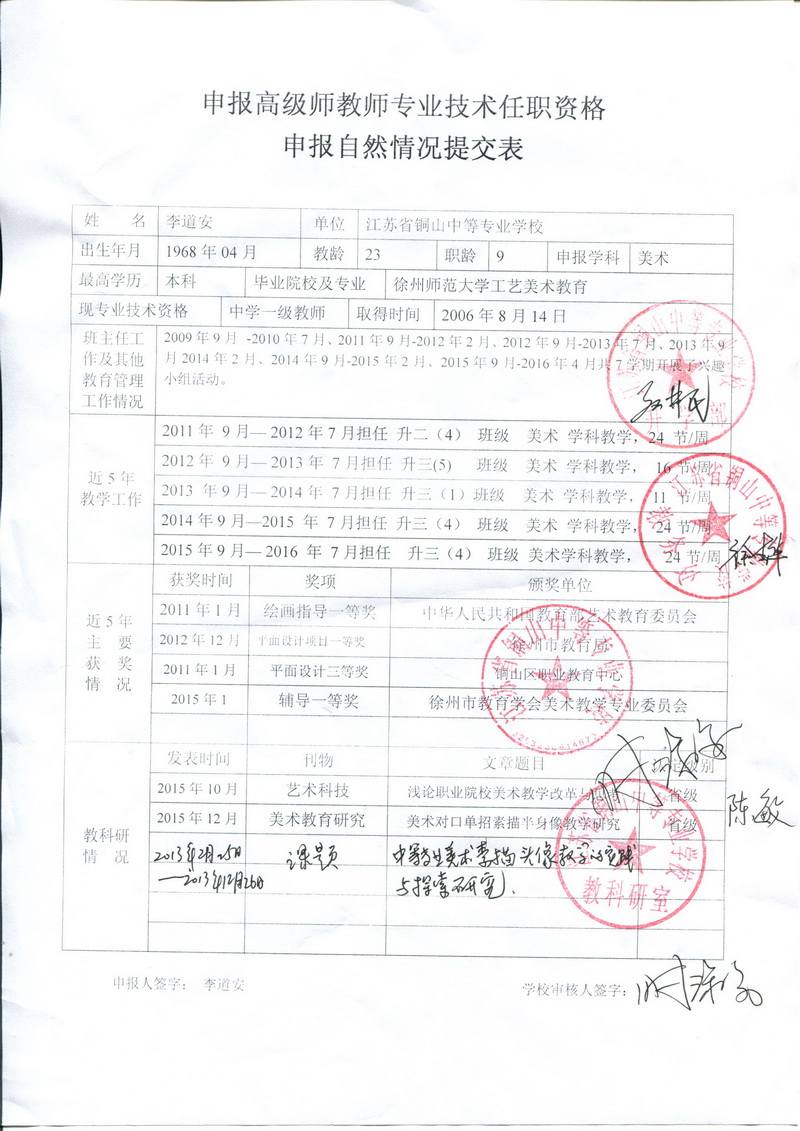 申报高级师教师专业技术任职资格
申报自然情况提交表
姓 名 李道安 单位 江苏省铜山中等专业学校
出生年月 1968 年 04 月 教龄 23 职龄 9 申报学科 美术
最高学历 本科 毕业院校及专业 徐州师范大学工艺美术教育
现专业技术资格 中学一级教师 取得时间 2006 年 8 月 14 日
班主任工作及其他教育管理工作情况
2009 年 9 月 -2010 年 7 月、2011 年 9 月-2012 年 2 月、2012 年 9 月-2013 年 7 月、2013 年 9
月 2014 年 2 月、2014 年 9 月-2015 年 2 月、2015 年 9 月-2016 年 4 月共 7 学期开展了兴趣
小组活动。
近 5 年
教学工作
2011 年 9 月— 2012 年 7 月担任 升二（4） 班级 美术 学科教学，24 节/周
2012 年 9 月— 2013 年 7 月担任 升三(5) 班级 美术 学科教学， 16 节/周
2013 年 9 月— 2014 年 7 月担任 升三（1）班级 美术 学科教学， 11 节/周
2014 年 9 月—2015 年 7 月担任 升三（4） 班级 美术 学科教学， 24 节/周
2015 年 9 月— 2016 年 7 月担任 升三（4） 班级 美术学科教学， 24 节/周
近 5 年
主 要
获 奖
情 况
获奖时间 奖项 颁奖单位
2011 年 1 月 绘画指导一等奖 中华人民共和国教育部艺术教育委员会
2012 年 12 月 平面设计项目一等奖 徐州市教育局
2011 年 1 月 平面设计三等奖 铜山区职业教育中心
2015 年 1 辅导一等奖 徐州市教育学会美术教学专业委员会
教科研
情 况
发表时间 刊物 文章题目 级别
2015 年 10 月 艺术科技 浅论职业院校美术教学改革 省级
2015 年 12 月 美术教育研究 美术对口单招素描半身像教学研究 省级
2013年2月25日 课题 中等专业美术素描头像教学的实践
—2013年12月26日 与探索研究.
江苏省铜山中等专业学校
教科研室
陈敏
申报人签字： 李道安
学校审核人签字：